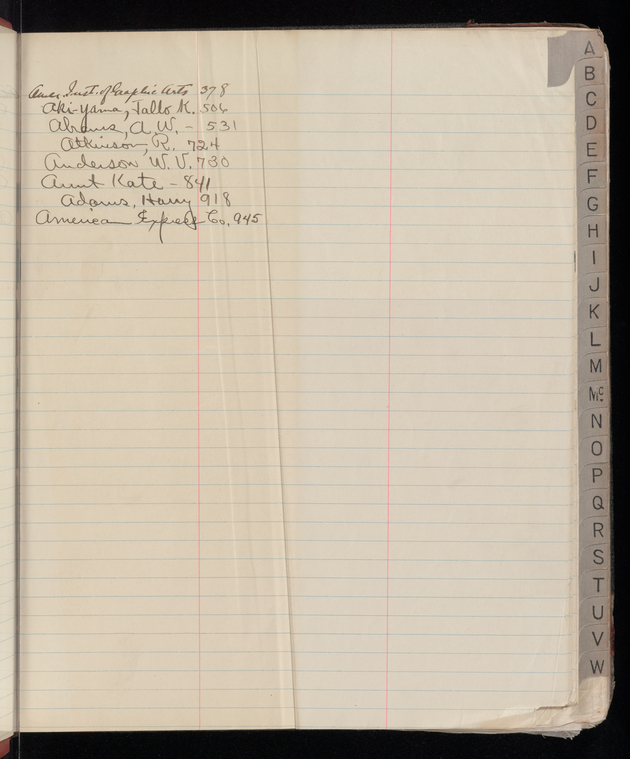 Amer. Inst. of Graphic Arts 378
Aki-yama, Tallo K. 506
Abrams, A. W. - 531
Atkinson, R. 724
Anderson W. V. 730
Aunt Kate - 841
Adams, Harry 918
American Express Co. 945
A
B
C
D
E
F
G
H
I
J
K
L
M
Mc
N
O
P
Q
R
S
T
U
V
W